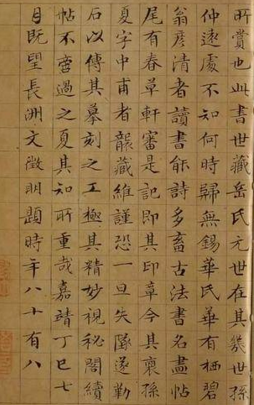 所賞也此書世藏岳氏元世在其幾世孫
仲遠處不知何時歸無錫華氏華有栖碧
翁彥清者讀書能詩多畜古法書名畫帖
尾有春草軒審是記即其印章今其裔孫
夏字中甫者襲藏維謹恐一旦失墜遂勒
石以傳其摹刻之工極其精妙視秘閣續
帖不啻過之夏其知所重哉嘉靖丁巳七
月既望長洲文徵明題時年八十有八